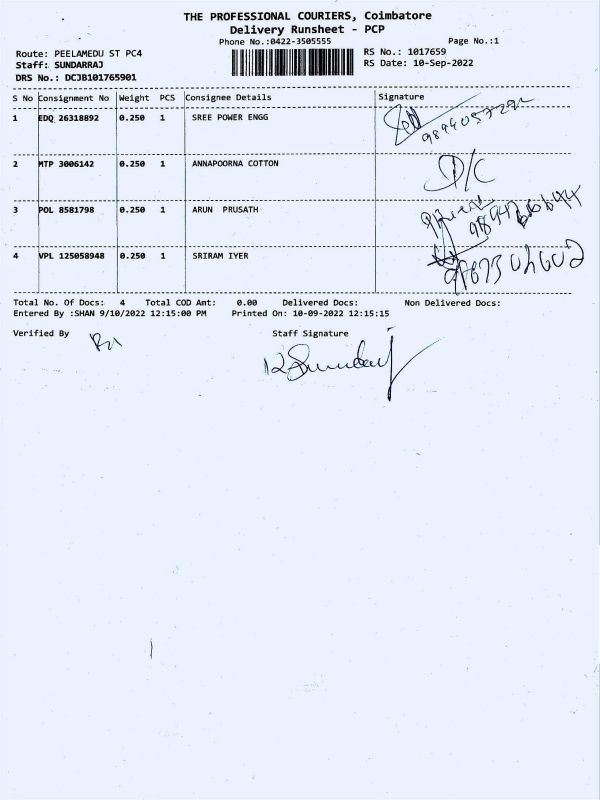 THE PROFESSIONAL COURIERS, Coimbatore
Delivery Runsheet - PCP
Phone No.:0422-3505555 Page No.:1
Route: PEELAMEDU ST PC4 RS No.: 1017659
Staff: SUNDARRAJ RS Date: 10-Sep-2022
DRS No.: DCJB101765901
S No Consignment No Weight PCS Consignee Details Signature
1 EDQ 26318892 0.250 1 SREE POWER ENGG
2 MTP 3006142 0.250 1 ANNAPOORNA COTTON D/C
3 POL 8581798 0.250 1 ARUN PRUSATH
4 VPL 125058948 0.250 1 SRIRAM IYER
Total No. Of Docs: 4 Total COD Amt: 0.00 Delivered Docs: Non Delivered Docs:
Entered By :SHAN 9/10/2022 12:15:00 PM Printed On: 10-09-2022 12:15:15
Verified By Staff Signature